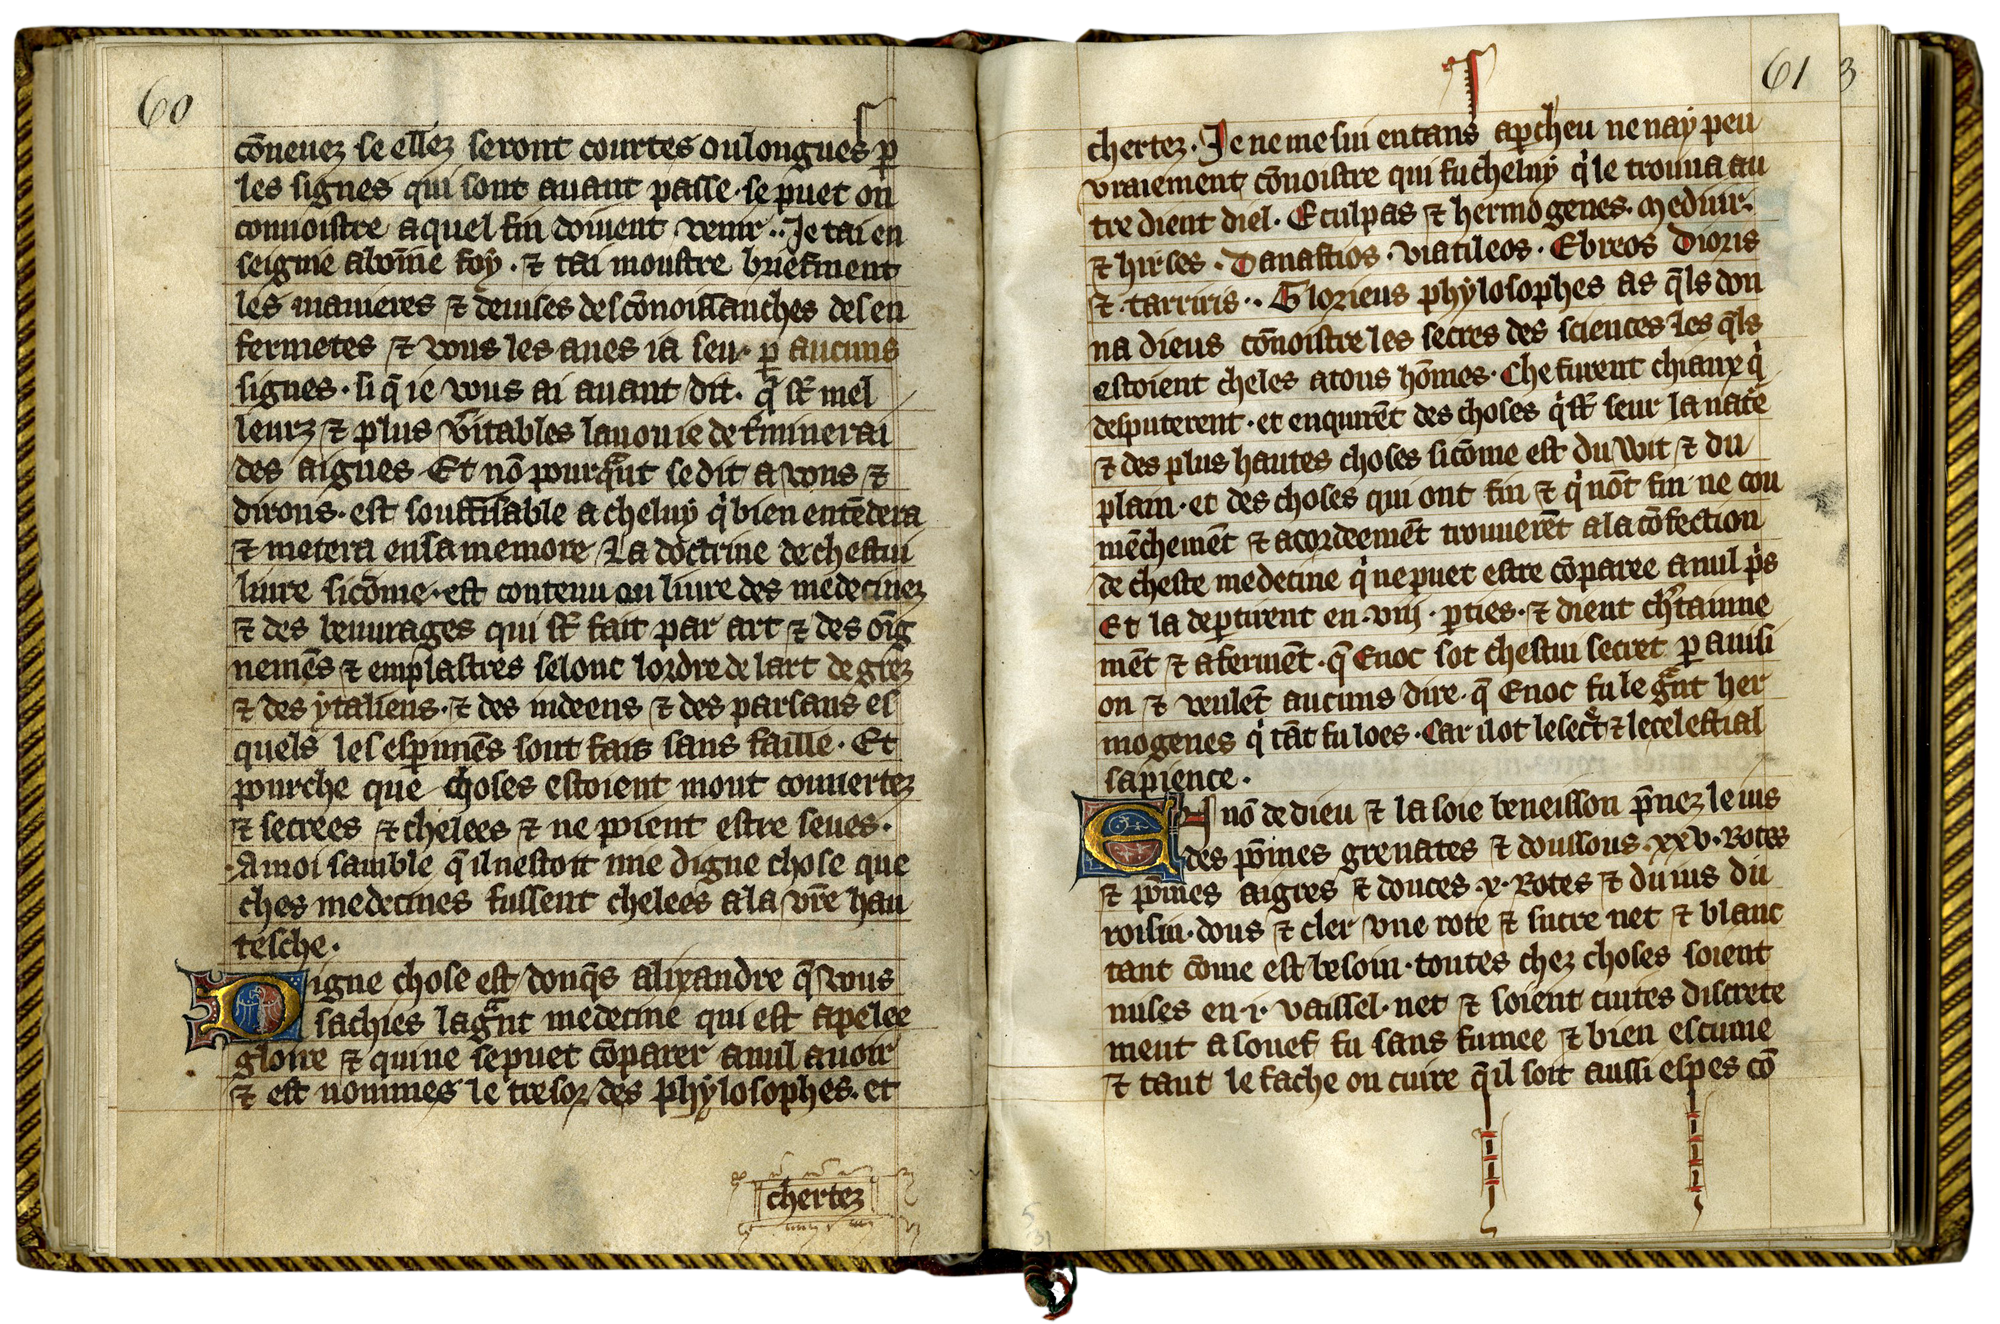 60
cōneuez se ellez seront courtes ou longues p̱
les signes qui sont auant passe · se puet on
connoistre a quel fin doiuent venir ·· Je tai en
seignie a boīne foy · ⁊ tai moustre briefment
les manieres ⁊ deuises des cōnoissanches des en
fermetes ⁊ vous les aues ia seu · p̱ aucuns
signes · si q̄ ie vous ai auant dit · q̄ sōt mel
leurz ⁊ plus v̄itables la v ou ie det̄minerai
des aigues Et nō pourq̄nt se dit a vous ⁊
dirons · est souffisable a cheluy q̇ bien entēdera
⁊ metera en sa memore La doctrine de chestui
liure sicōme · est contenu ou liure des medecinez
⁊ des beuurages qui sōt fait par art ⁊ des oīg
nemēs ⁊ emplastres selonc lordre de lart de grez
⁊ des ytaliens · ⁊ des indeens ⁊ des parsans es
quels les esp̱imēs sont fais sans faille · Et
pour che que choses estoient mout couuertez
⁊ secrees ⁊ chelees ⁊ ne pοient estre seues ·
A moi samble q̄ il nestoit mie digne chose que
ches medecines fussent chelees a la vr̄e hau
tesche ·
Digne chose est donq̄s alixandre q̄ vous
sachies la gr̄nt medecine qui est apelee
gloire ⁊ qui ne se puet cōparer a nul auoir
⁊ est nommes le tresor des phylosophes · et
chertez
61 3
chertez · Je ne me sui en tans ap̱cheu ne nay peu
vraiement cōnoistre qui fu cheluy q̇ le trouua au
tre dient diel · Eculpas ⁊ hermogenes · meduir ·
⁊ hirses · Danastios · viatileos · Ebreos Dioris
⁊ tarriris ·· Glorieus phylosophes as q̄ls don
na dieus cōnoistre les secres des sciences les q̄ls
estoient cheles a tous hōmes · Che furent chiaux q̇
desputerent · et enquirēt des choses q̇ sōt seur la nat̄e
⁊ des plus hautes choses sicōme est du wit ⁊ du
plain · et des choses qui ont fin ⁊ q̇ nōt fin ne cou
mēchemēt ⁊ acordeemēt trouuerēt a la cōfection
de cheste medecine q̇ ne puet estre cōparee a nul ṗs
Et la dep̱tirent en · viij · p̱ties · ⁊ dient ch̄tainne
mēt ⁊ afermēt · q̄ Enoc sot chestui secret p̱ auisi
on ⁊ veulēt aucuns dire · q̄ Enoc fu le gr̄nt her
mogenes q̇ tāt fu loes · Car il ot le secr̄t ⁊ le celestial
sapience ·
En nō de dieu ⁊ la soie beneisson p̄nez le ius
des pōmes grenates ⁊ doussous · xxv · Rotes
⁊ pōmes aigres ⁊ douces · x · Rotes ⁊ du ius du
roisin · dous ⁊ cler vne rote ⁊ sucre net ⁊ blanc
tant cōme est besoin · toutes chez choses soient
mises en · i · vaissel · net ⁊ soient cuites discrete
ment a souef fu sans fumee ⁊ bien escume
⁊ tant le fache on cuire q̄ il soit aussi espes cō